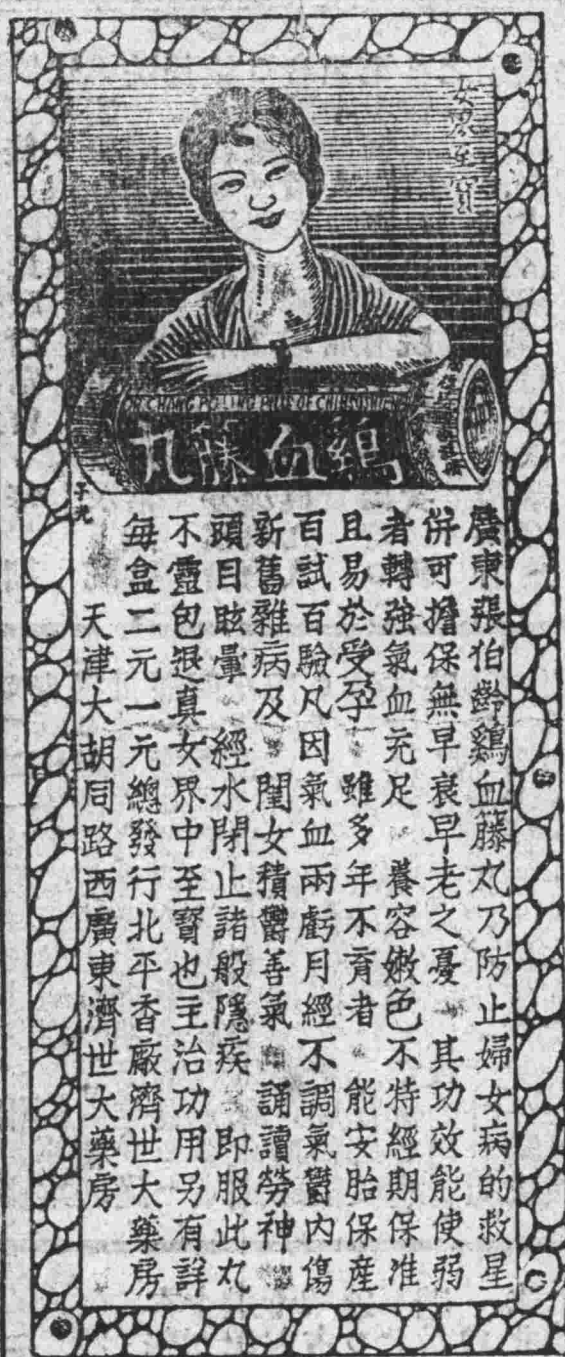 女界至寶
CHANG PO LING PILLS OF
鷄血籐丸
子光
廣東張伯齡鷄血籐丸乃防止婦女病的救星
併可擔保無早衰早老之憂 其功效能使弱
者轉強氣血充足 養容嫩色不特經期保准
且易於受孕 雖多年不育者 能安胎保產
百試百驗凡因氣血兩虧月經不調氣鬱內傷
新舊雜病及 閨女積鬱善氣 誦讀勞神
頭目眩暈 經水閉止諸般隱疾 即服此丸
不靈包退真女界中至寶也主治功用另有詳
每盒二元一元總發行北平香廠濟世大藥房
天津大胡同路西廣東濟世大藥房